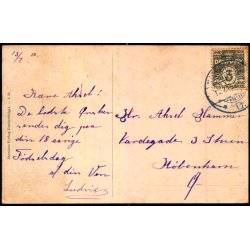 13/7 10.
Kære Aksel!
De bedste Ønsker
sender dig paa
din 18 aarige
Fødselsdag
af din Ven
Ludvig
Hr. Aksel Hammer
3 Thuen
København
Q
3